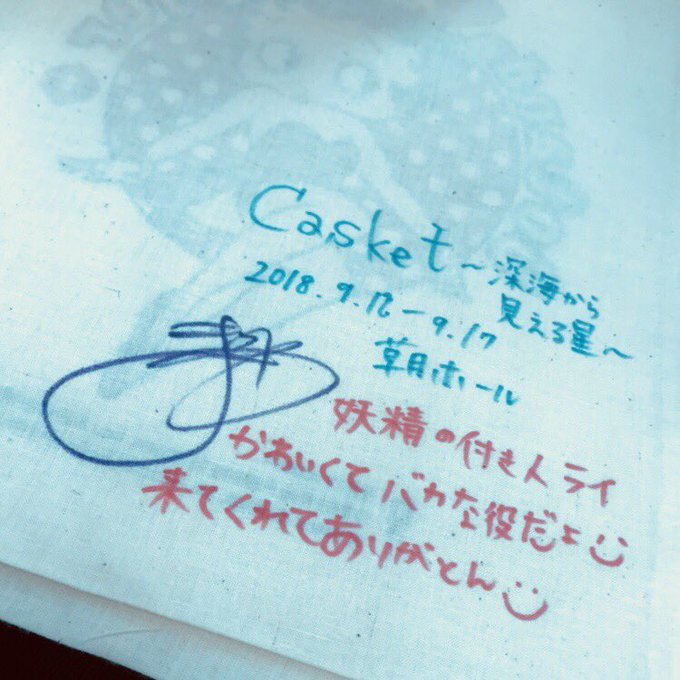 Casket～深海から
見える星～
2018.9.12ー9.17
草月ホール
妖精の付き人ライ
かわいくてバカな役だよ
来てくれてありがとん